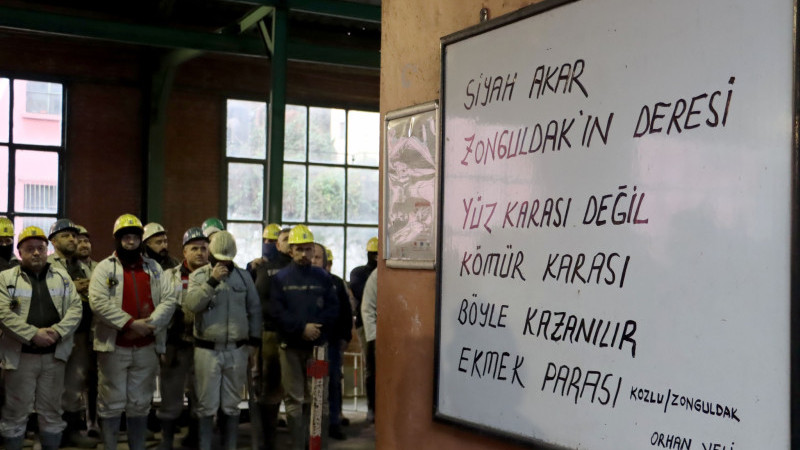 SİYAH AKAR
ZONGULDAK'IN DERESİ
YÜZ KARASI DEĞİL
KÖMÜR KARASI
BÖYLE KAZANILIR
EKMEK PARASI KOZLU/ZONGULDAK
ORHAN VELİ